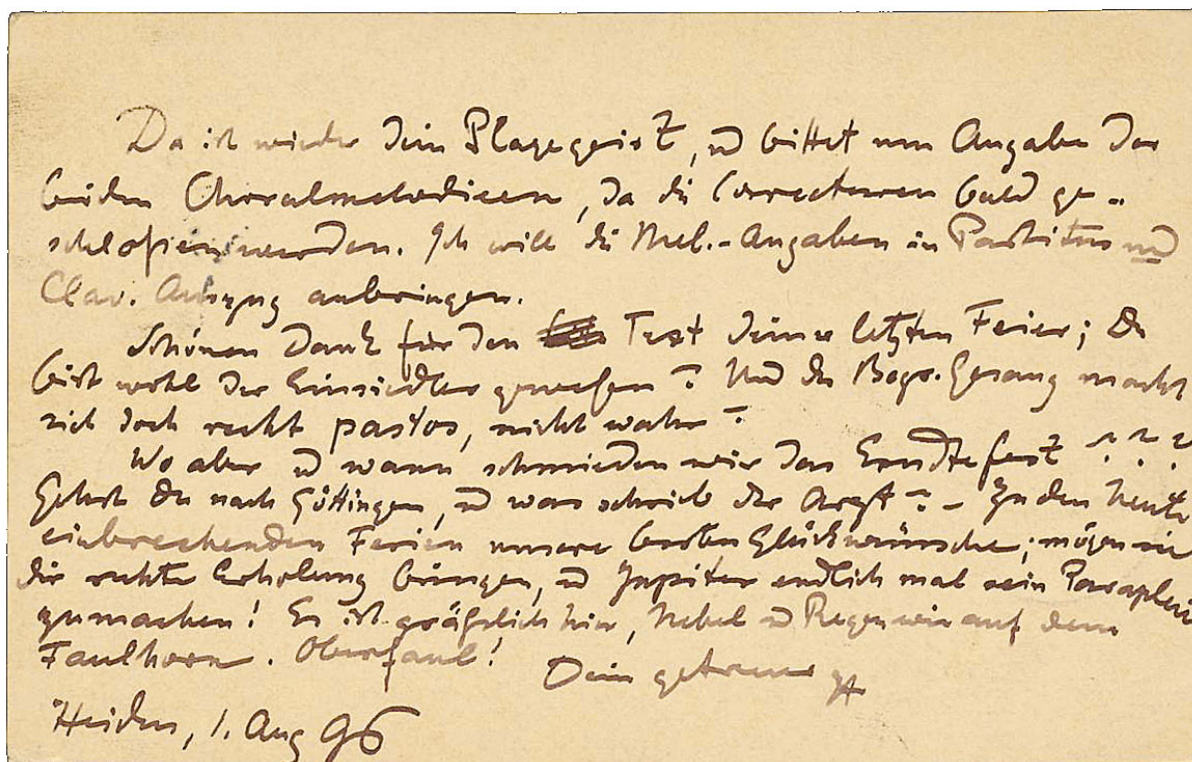 Da ist wieder Dein Plagegeist, u bittet um Angabe der
beiden Choralmelodieen, da die Correcturen bald ge-
schlossen werden. Ich will die Mel.-Angaben in Partitur und
Clav. Auszug anbringen.
Schönen Dank für den Text Deiner letzten Feier; Du
bist wohl der Einsiedler gewesen? Und der Gesang macht
sich doch recht pastos, nicht wahr?
Wo aber u wann schmieden wir das Erndtefest ? ? ?
Gehst Du nach Göttingen, u was schrieb der Arzt? – Zu den heute
einbrechenden Ferien unsere besten Glückwünsche; mögen sie
Dir rechte Erholung bringen, u Jupiter endlich mal sein Parapluie
zumachen! Es ist gräßlich hier, Nebel u Regen wie auf dem
Faulhorn. Oberfaul!
Dein getreuer
Heiden, 1. Aug 96